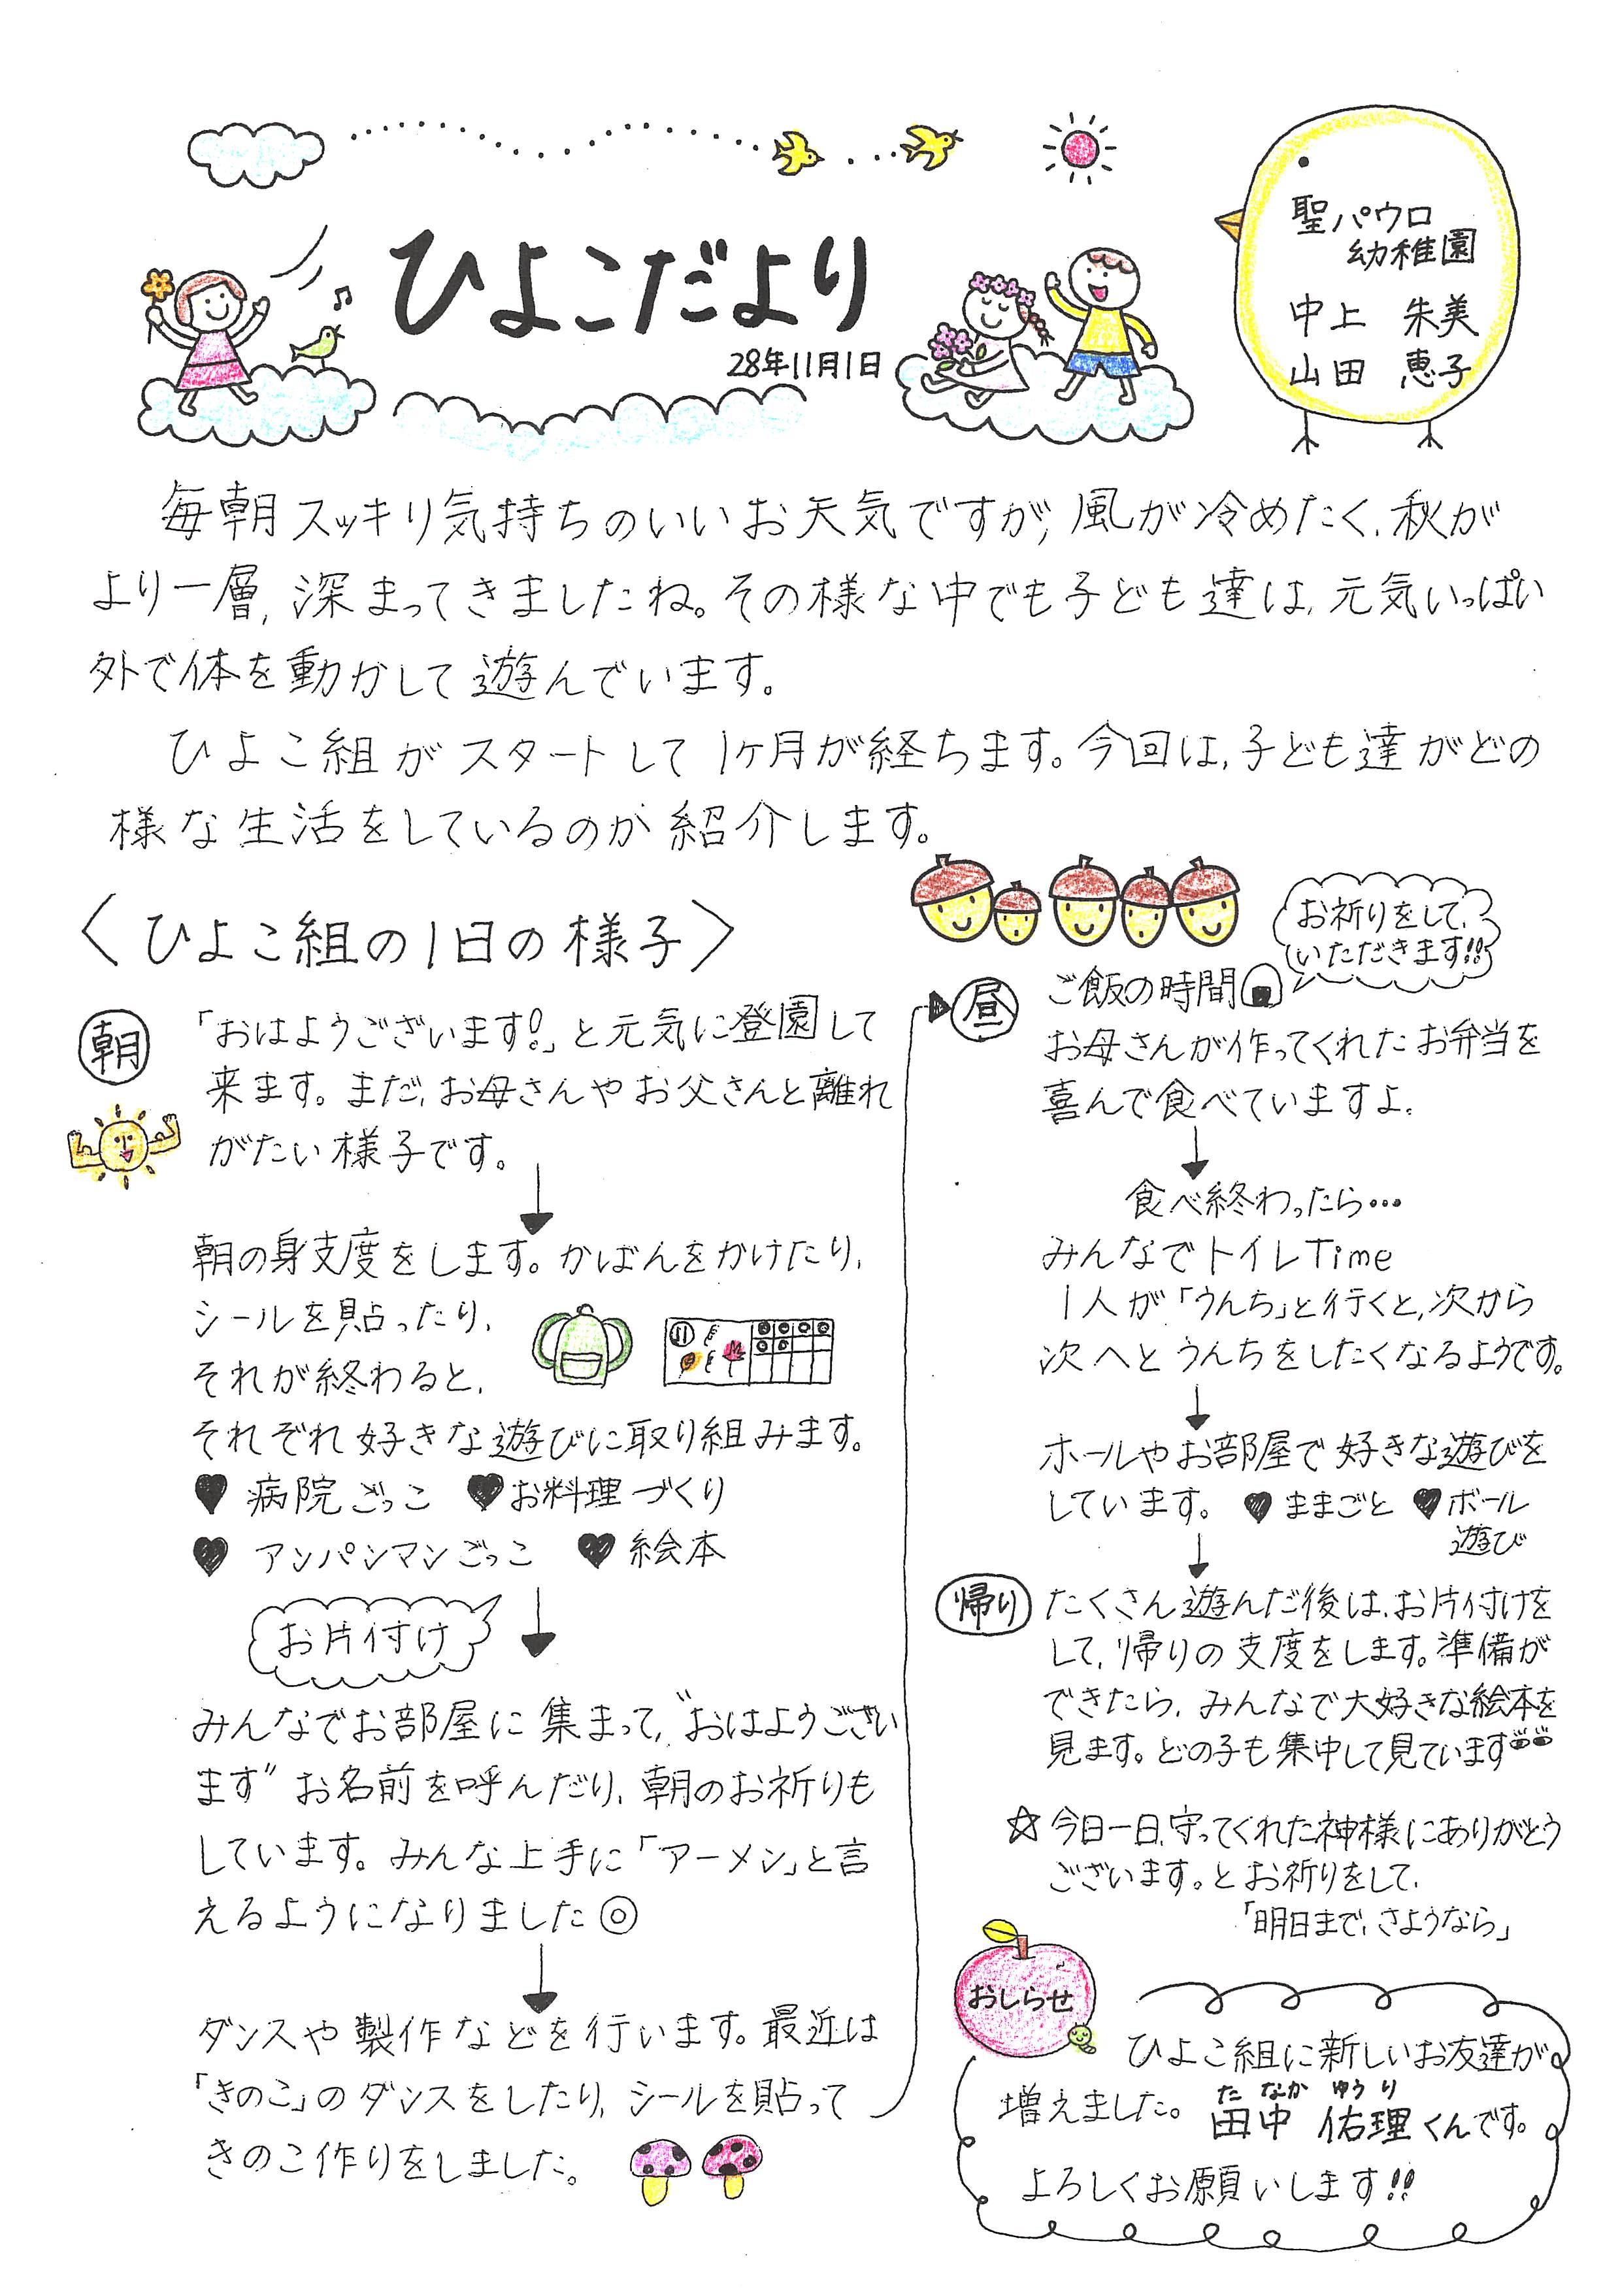 ひよこだより
28年11月1日
聖パウロ
幼稚園
中上 朱美
山田 恵子
毎朝スッキリ気持ちのいいお天気ですが、風が冷めたく、秋が
より一層、深まってきましたね。その様な中でも子ども達は、元気いっぱい
外で体を動かして遊んでいます。
ひよこ組がスタートして1ヶ月が経ちます。今回は、子ども達がどの
様な生活をしているのか紹介します。
〈ひよこ組の1日の様子〉
朝
「おはようございます!」と元気に登園して
来ます。まだ、お母さんやお父さんと離れ
がたい様子です。
朝の身支度をします。かばんをかけたり、
シールを貼ったり、
それが終わると、
それぞれ好きな遊びに取り組みます。
♥ 病院ごっこ ♥お料理づくり
♥ アンパンマンごっこ ♥ 絵本
お片付け
みんなでお部屋に集まって、“おはようござい
ます”お名前を呼んだり、朝のお祈りも
しています。みんな上手に「アーメン」と言
えるようになりました◎
ダンスや製作などを行います。最近は
「きのこ」のダンスをしたり、シールを貼って
きのこ作りをしました。
お祈りをして、
いただきます!!
昼
ご飯の時間
お母さんが作ってくれたお弁当を
喜んで食べていますよ。
食べ終わったら…
みんなでトイレTime
1人が「うんち」と行くと、次から
次へとうんちをしたくなるようです。
ホールやお部屋で好きな遊びを
しています。 ♥ ままごと ♥ボール
遊び
帰り
たくさん遊んだ後は、お片付けを
して、帰りの支度をします。準備が
できたら、みんなで大好きな絵本を
見ます。どの子も集中して見ています
☆今日一日、守ってくれた神様にありがとう
ございます。とお祈りをして、
「明日まで、さようなら」
おしらせ
ひよこ組に新しいお友達が
増えました。
た なか ゆう り
田中 佑理くんです。
よろしくお願いします!!